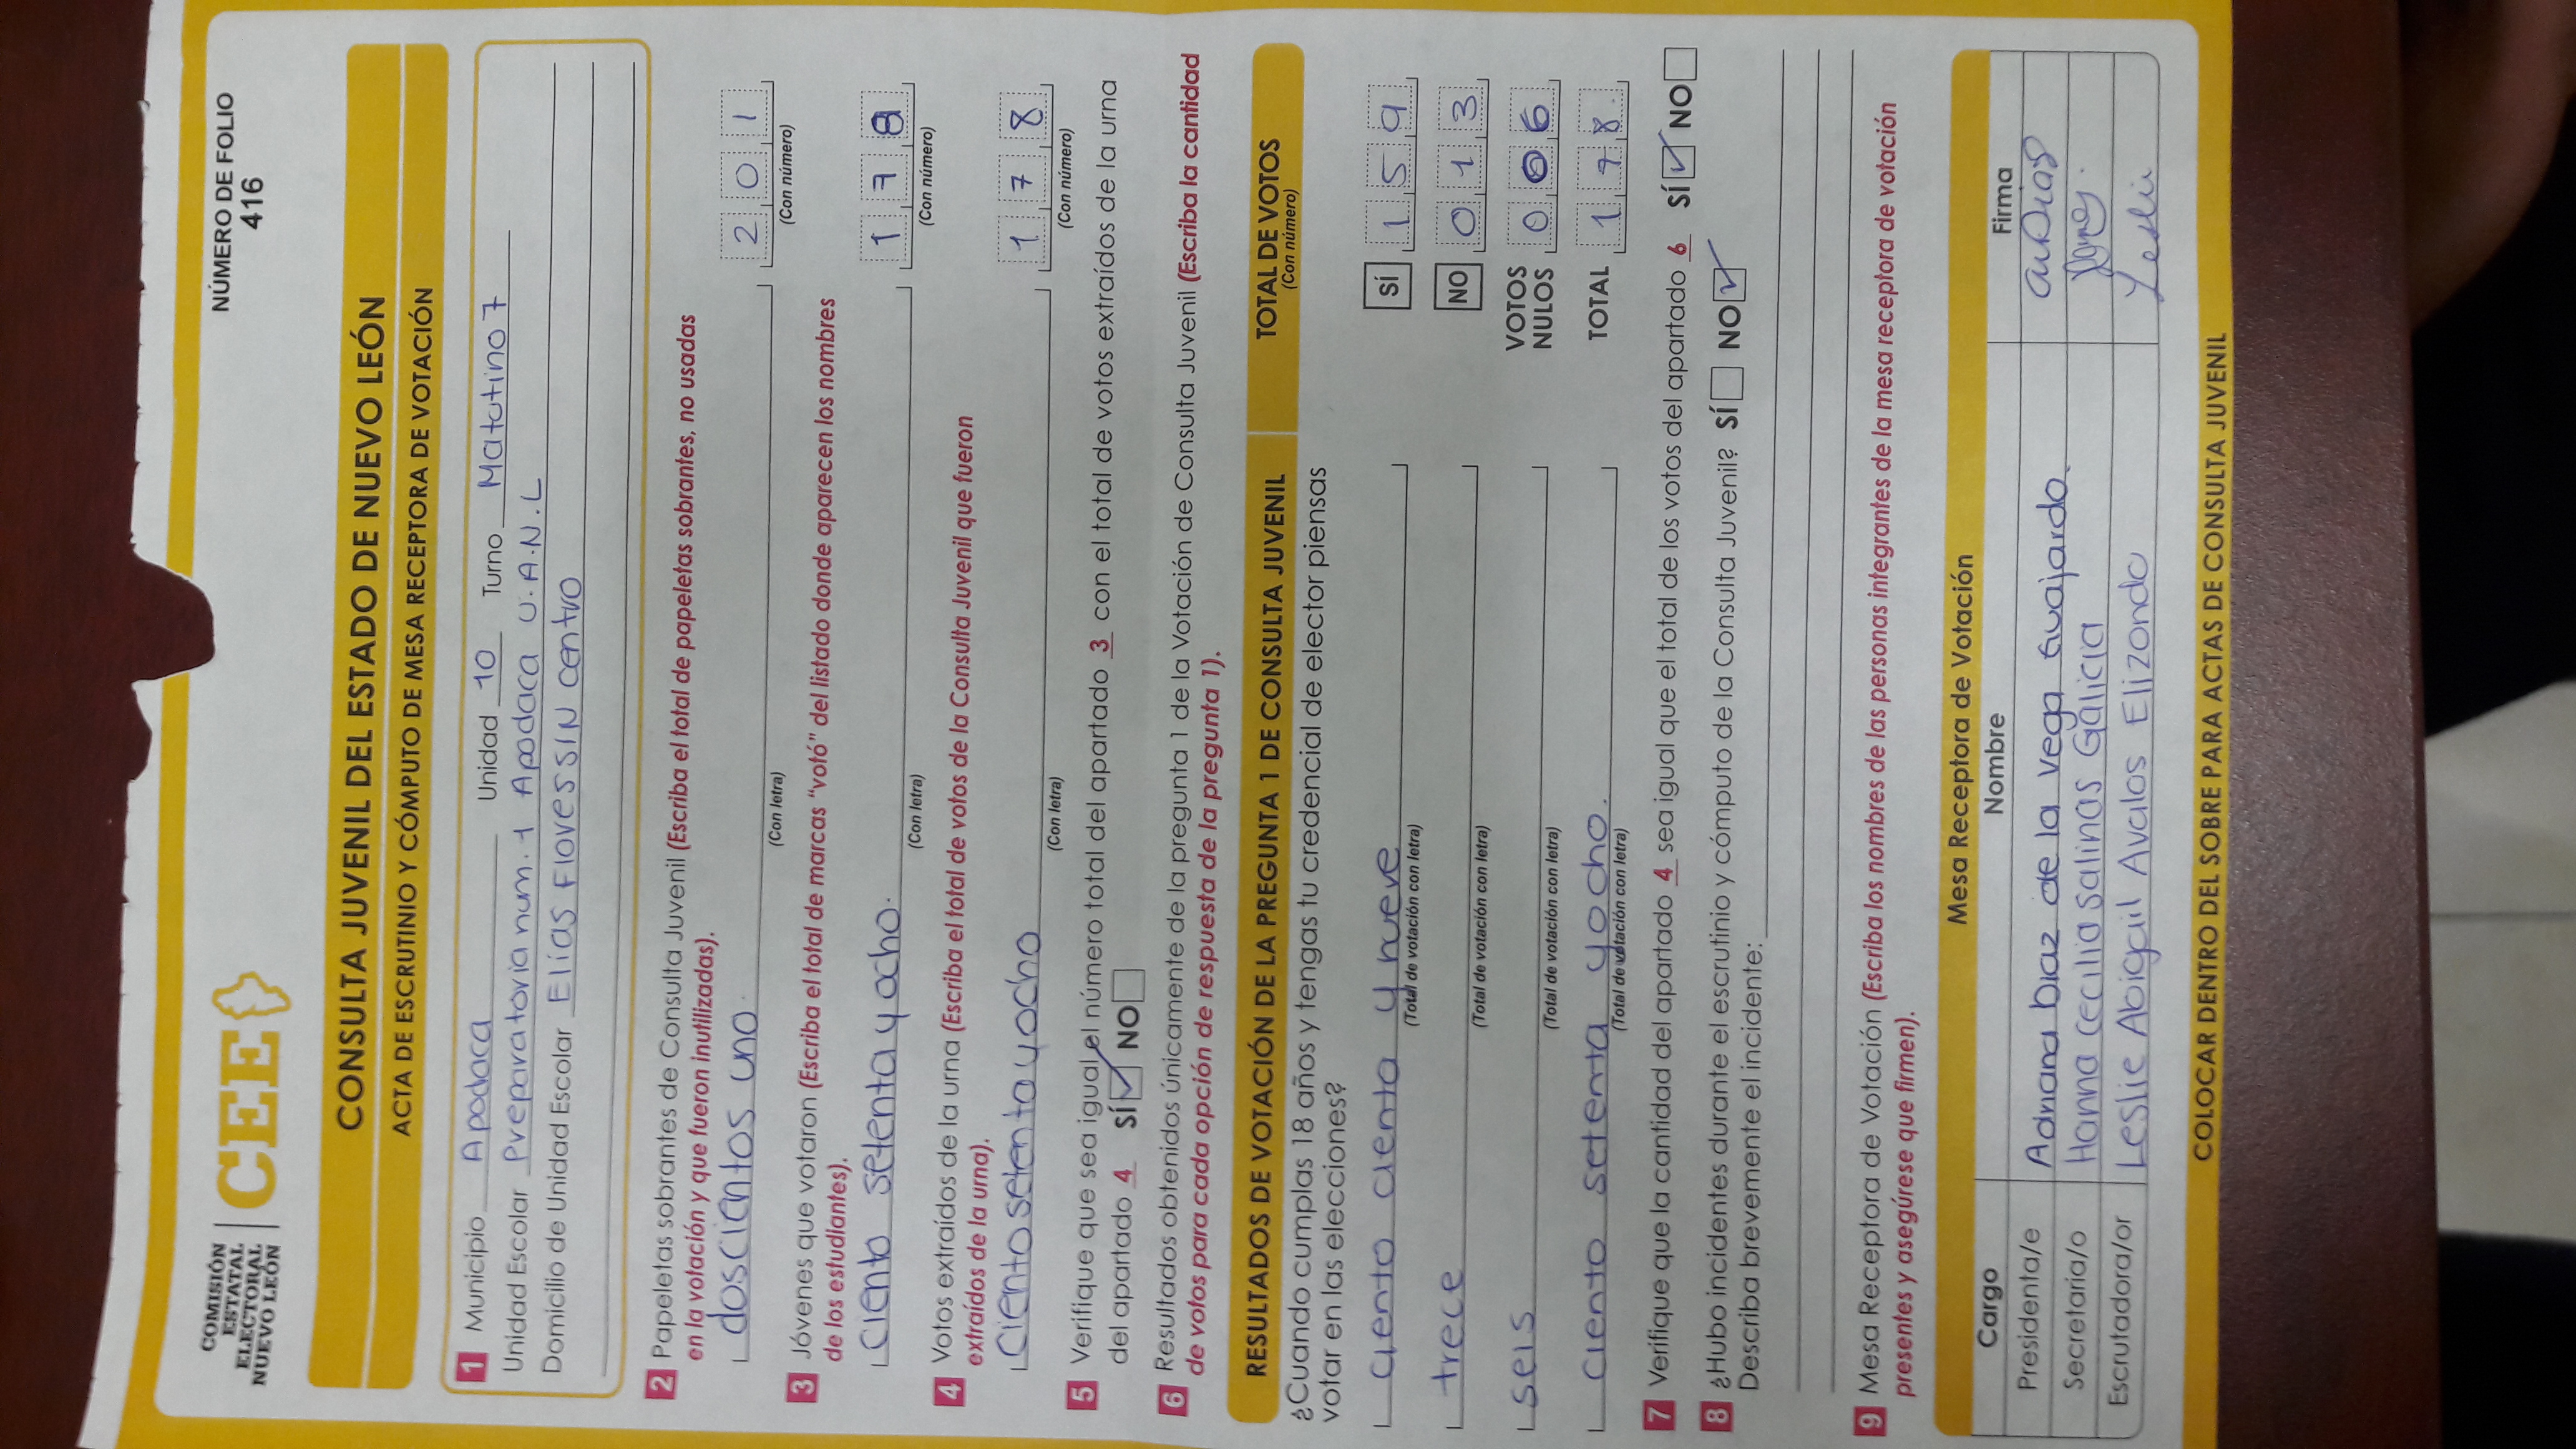 COMISIÓN
ESTATAL
ELECTORAL
NUEVO LEÓN
CEE
NÚMERO DE FOLIO
416
CONSULTA JUVENIL DEL ESTADO DE NUEVO LEÓN
ACTA DE ESCRUTINIO Y CÓMPUTO DE MESA RECEPTORA DE VOTACIÓN
1 Municipio Apodaca Unidad 10 Turno Matutino 7
Unidad Escolar Preparatoria num. 1 Apodaca U.A.N.L
Domicilio de Unidad Escolar Elías Flores SIN centro
2 Papeletas sobrantes de Consulta Juvenil (Escriba el total de papeletas sobrantes, no usadas
en la votación y que fueron inutilizadas).
doscientos uno. 2 0 1
(Con letra) (Con número)
3 Jóvenes que votaron (Escriba el total de marcas "votó" del listado donde aparecen los nombres
de los estudiantes).
ciento setenta y ocho. 1 7 8
(Con letra) (Con número)
4 Votos extraídos de la urna (Escriba el total de votos de la Consulta Juvenil que fueron
extraídos de la urna).
ciento setenta y ocho 1 7 8
(Con letra) (Con número)
5 Verifique que sea igual el número total del apartado 3 con el total de votos extraídos de la urna
del apartado 4 SÍ ✓ NO
6 Resultados obtenidos únicamente de la pregunta 1 de la Votación de Consulta Juvenil (Escriba la cantidad
de votos para cada opción de respuesta de la pregunta 1).
RESULTADOS DE VOTACIÓN DE LA PREGUNTA 1 DE CONSULTA JUVENIL TOTAL DE VOTOS
(Con número)
¿Cuando cumplas 18 años y tengas tu credencial de elector piensas
votar en las elecciones?
ciento ciento y nueve SÍ 1 5 9
(Total de votación con letra)
trece NO 0 1 3
(Total de votación con letra)
seis VOTOS NULOS 0 0 6
(Total de votación con letra)
ciento setenta y ocho. TOTAL 1 7 8
(Total de votación con letra)
7 Verifique que la cantidad del apartado 4 sea igual que el total de los votos del apartado 6 SÍ ✓ NO
8 ¿Hubo incidentes durante el escrutinio y cómputo de la Consulta Juvenil? SÍ NO ✓
Describa brevemente el incidente:
9 Mesa Receptora de Votación (Escriba los nombres de las personas integrantes de la mesa receptora de votación
presentes y asegúrese que firmen).
Mesa Receptora de Votación
Cargo Nombre Firma
Presidenta/e Adriana Diaz de la Vega Guajardo
Secretaria/o Hanna Cecilia Salinas Galicia
Escrutadora/or Leslie Abigail Avalos Elizondo Leslie
COLOCAR DENTRO DEL SOBRE PARA ACTAS DE CONSULTA JUVENIL